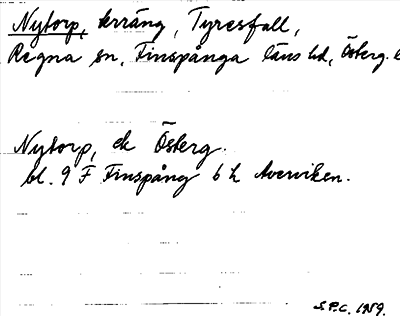 Nytorp, krräng, Tyresfall,
Regna sn, Finspånga läns hd, Österg. l
Nytorp, ek Österg.
bl. 9 F Finspång 6 h Averviken.
S.P.C. 1959.